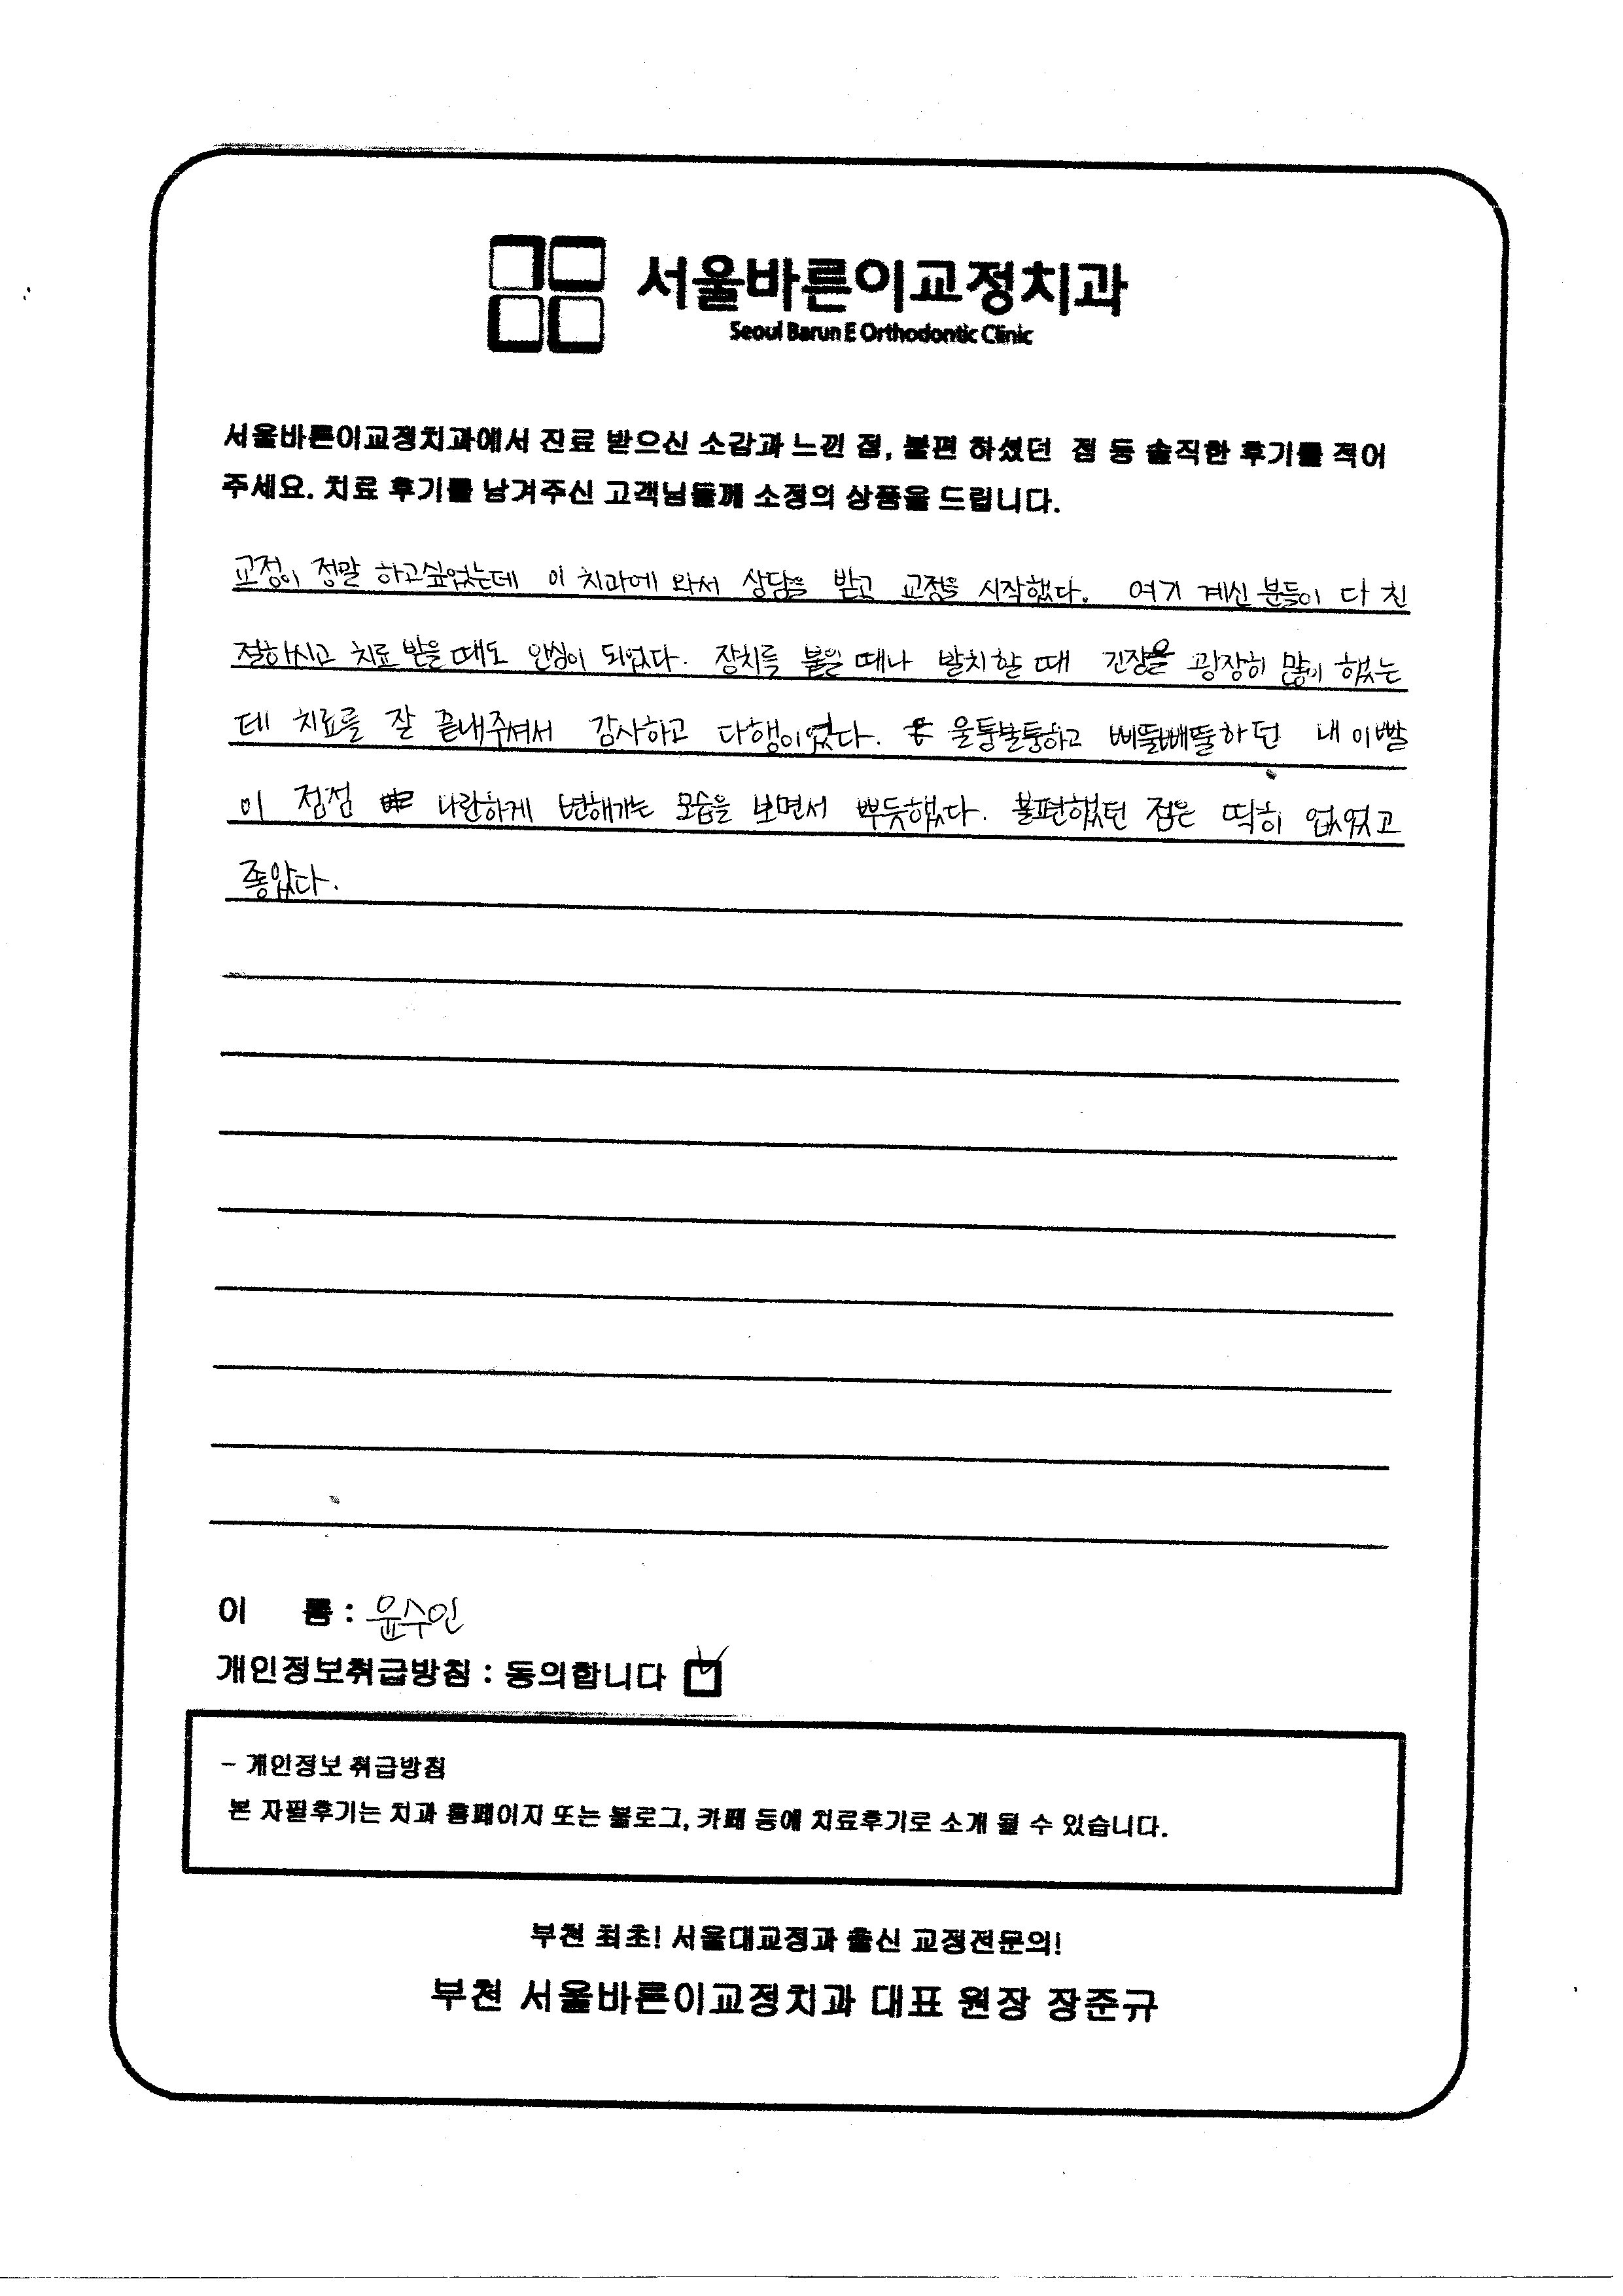 서울바른이교정치과
Seoul Barun E Orthodontic Clinic
서울바른이교정치과에서 진료 받으신 소감과 느낀 점, 불편 하셨던 점 등 솔직한 후기를 적어
주세요. 치료 후기를 남겨주신 고객님들께 소정의 상품을 드립니다.
교정이 정말 하고싶었는데 이 치과에 와서 상담을 받고 교정을 시작했다. 여기 계신 분들이 다 친
절하시고 치료 받을 때도 안심이 되었다. 장치를 붙일 때나 발치할 때 긴장을 굉장히 많이 했는
데 치료를 잘 끝내주셔서 감사하고 다행이었다. 울퉁불퉁하고 삐뚤빼뚤하던 내 이빨
이 점점 나란하게 변해가는 모습을 보면서 뿌듯했다. 불편했던 점은 딱히 없었고
좋았다.
이 름 : 윤수인
개인정보취급방침 : 동의합니다
- 개인정보 취급방침
본 자필후기는 치과 홈페이지 또는 블로그, 카페 등에 치료후기로 소개 될 수 있습니다.
부천 최초! 서울대교정과 출신 교정전문의!
부천 서울바른이교정치과 대표 원장 장준규